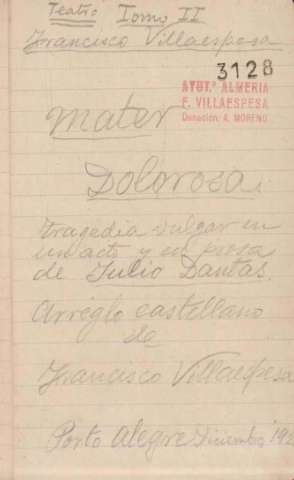 Teatro Tomo II
Francisco Villaespesa
3128
AYUT.º ALMERIA
F. VILLAESPESA
Donación: A. MORENO
Mater
Dolorosa.
tragedia vulgar en
un acto y en prosa
de Julio Dantas.
Arreglo castellano
de
Francisco Villaespesa
Porto Alegre Diciembre 192